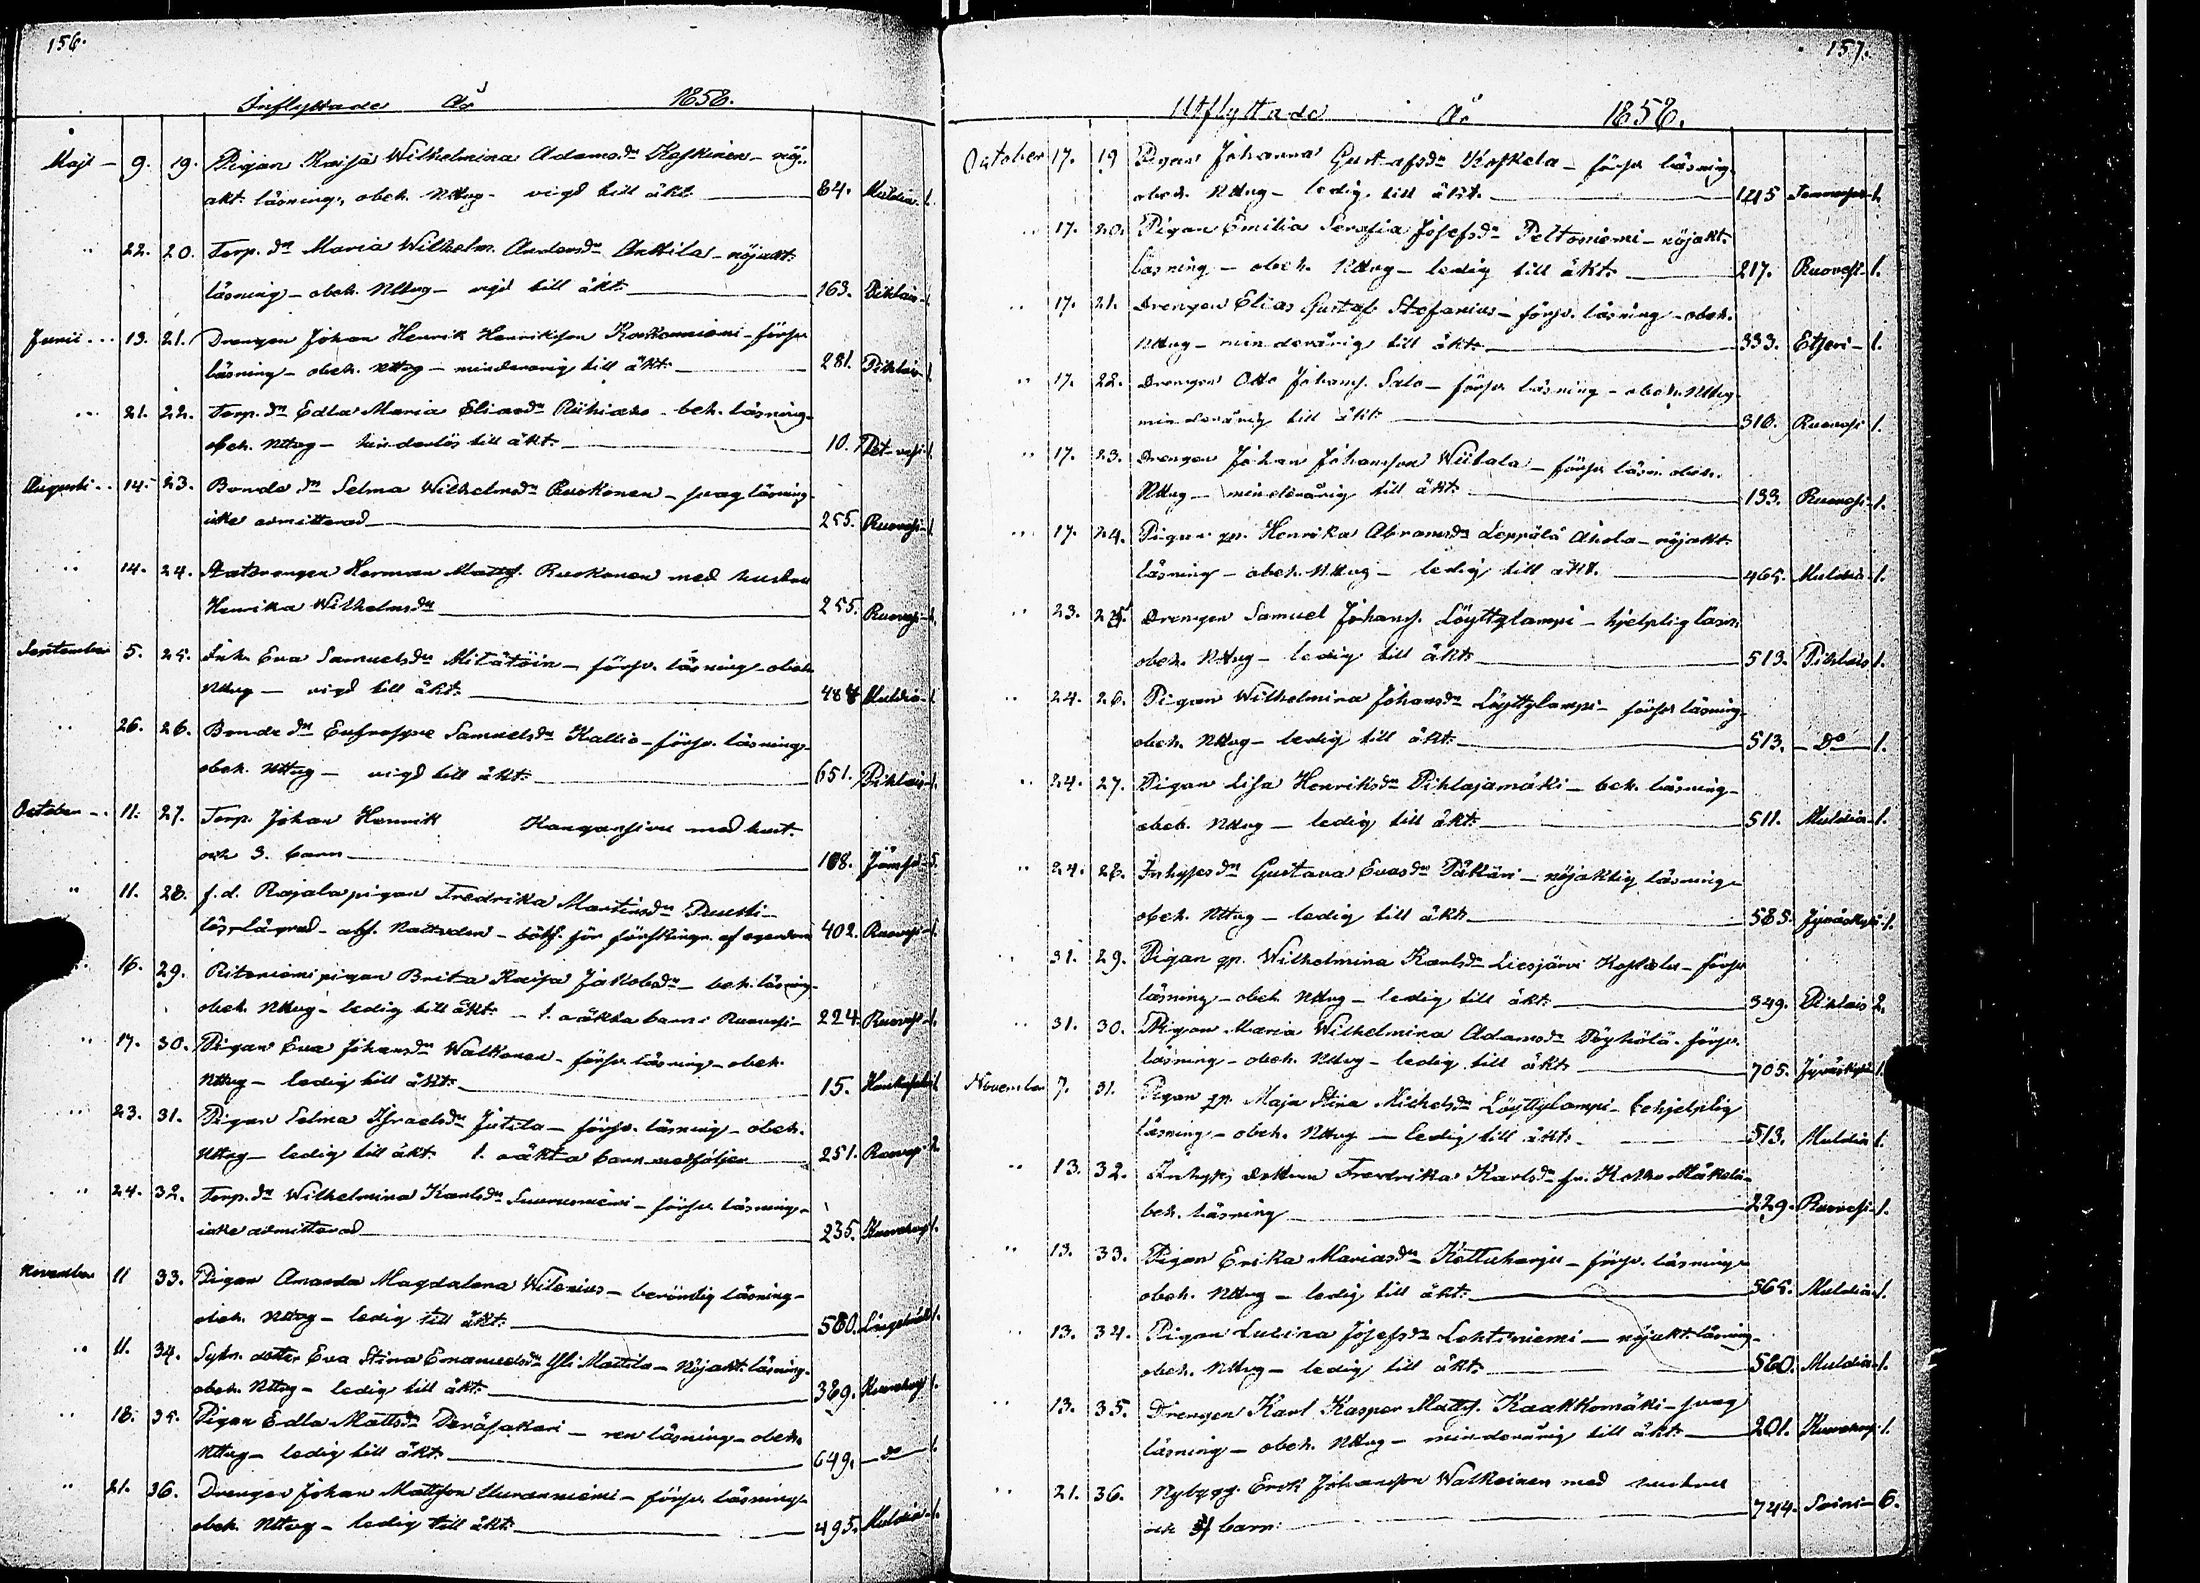 156.
Inflyttade År 1858.
Maji - 9. 19. Pigan Kaisa Wilhelmina Adamsdr Koskinen - nöj-
akt. läsning, obeh. Nttvg - vigd till äkt. 64. Muldia 1.
" 22. 20. Torp. dr Maria Wilhelm. Andersdr Anttila - nöjakt.
läsning - obeh. Nttvg - vigd till äkt. 163. Pihlais 1.
Junii 13. 21. Drengen Johan Henrik Henriksson Koskenniemi - försv.
läsning - obeh. Nttvg - minderårig till äkt. 281. Pihlais 1.
" 21. 22. Torp. dr Edla Maria Eliasdr Riihiaho - beh. läsning
obeh. Nttvg - hinderlös till äkt. 10. Pet-vesi 1.
Augusti 14. 23. Bonde dr Selma Wilhelmsdr Ruokonen - svag läsning
icke admitterad 255. Ruovesi 1.
" 14. 24. Statdrengen Herman Matts. Ruokonen med hustru
Henrika Wilhelmsdr 255. Ruovesi
September 5. 25. Inh. Eva Samuelsdr - försv. läsning - obeh.
Nttvg - vigd till äkt. 488 Muldia 1.
" 26. 26. Bonde dr Eufrosyne Samuelsdr Kallio - försv. läsning
obeh. Nttvg - vigd till äkt. 651. Pihlais 1.
October 11. 27. Torp. Johan Henrik Kangassivu med hust.
och 3. barn 108. Jämsä 5.
" 11. 28. f.d. Rajalapigan Fredrika Martinsdr
- abs. Nattvden - bötf. för förskingr. af egendom 402. Ruovesi 1.
16. 29. Ritoniemi pigan Brita Kaisa Jakobsdr - beh. läsning
obeh. Nttvg - ledig till äkt. - 1. oäkta barn i Ruovesi - 224. Ruovesi 1.
" 17. 30. Pigan Eva Johansdr Walkonen - försv. läsning - obeh.
Nttvg - ledig till äkt. 15. 1.
" 23. 31. Pigan Selma Israelsdr Jutila - försv. läsning - obeh.
Nttvg - ledig till äkt. 1. oäkta barn medföljer 251. Ruovesi 2.
" 24. 32. Torp. dr Wilhelmina Karlsdr - försv. läsning -
icke admitterad 235. Kuorehvsi 1.
November 11 33. Pigan Amanda Magdalena Wilenius - berömlig läsning -
obeh. Nttvg - ledig till äkt. 580. Längelmäki 1.
" 11. 34. Sytn. dotter Eva Stina Emanuelsdr Yli Mattila - Nöjakt. läsning.
obeh. Nttvg - ledig till äkt. 389. Kuorehvsi 1.
" 18. 35. Pigan Edla Mattsdr - ren läsning - obeh.
Nttvg - ledig till äkt. 649. do 1.
" 21. 36. Drengen Johan Mattsson - försv. läsning
obeh. Nttvg - ledig till äkt. 495. Muldia 1.
157.
Utflyttade År 1858.
October 17. 19 Pigan Johanna Gustafsdr Koskela - försv. läsning.
obeh. Nttvg - ledig till äkt. 1.
" 17. 20. Pigan Emilia Serafia Josefsdr Peltoniemi - nöjakt.
läsning - obeh. Nttvg - ledig till äkt. 217. Ruovesi 1.
" 17. 21. Drengen Elias Gustaf Stefanius - försv. läsning - obeh.
Nttvg - minderårig till äkt. 333. Etseri - 1.
" 17. 22. Drengen Otto Johans. Salo - försv. läsning - obeh. Nttvg
minderårig till äkt. 310. Ruovesi 1.
" 17. 23. Drengen Johan Johansson Wiitala - försv. läsn. obeh.
Nttvg - minderårig till äkt. 133. Ruovesi 1.
" 17. 24. Pigan qp. Henrika Abramsdr Leppälä Ahola - nöjakt.
läsning - obeh. Nttvg - ledig till äkt. 465. Muldia 1.
" 23. 25. Drengen Samuel Johans. Löyttylampi - hjelplig läsn.
obeh. Nttvg - ledig till äkt. 513. Pihlais 1.
" 24. 26. Pigan Wilhelmina Johansdr Löyttylampi - försv. läsning.
obeh. Nttvg - ledig till äkt. 513. Do 1.
" 24. 27. Pigan Lisa Henriksdr Pihlajamäki - beh. läsning -
obeh. Nttvg - ledig till äkt. 511. Muldia 1.
" 24. 28. Inhyses dr Gustava Evasdr - nöjaktig läsning -
obeh. Nttvg - ledig till äkt. 585. Jyväskylä 1.
31. 29. Pigan qp. Wilhelmina Karlsdr Liesjärvi Koskela - försv.
läsning - obeh. Nttvg - ledig till äkt. 349. Pihlais 2.
" 31. 30. Pigan Maria Wilhelmina Adamsdr Pöyhölä - försv.
läsning - obeh. Nttvg - ledig till äkt. 705. Jyväskylä 1.
November 7. 31. Pigan qp. Maja Stina Michelsdr Löyttylampi - behjelplig
läsning - obeh. Nttvg - ledig till äkt. 513. Muldia 1.
" 13. 32. Inhyses dottren Fredrika Karlsdr fr. Mäkelä
beh. läsning 229. Ruovesi 1.
" 13. 33. Pigan Erika Mariasdr Kettuharju - försv. läsning
obeh. Nttvg - ledig till äkt. 565. Muldia 1.
" 13. 34. Pigan Lusina Josefsdr Lehtiniemi - nöjakt. läsning -
obeh. Nttvg - ledig till äkt. 560. Muldia 1.
" 13. 35. Drengen Karl Kasper Matts. Kaakkomäki - svag
läsning - obeh. Nttvg - minderårig till äkt. 201. Kuorehvsi 1.
" 21. 36. Nybygg. Erik Johansson Walkeinen med hustru
och 4 barn. 744. Soini - 6.